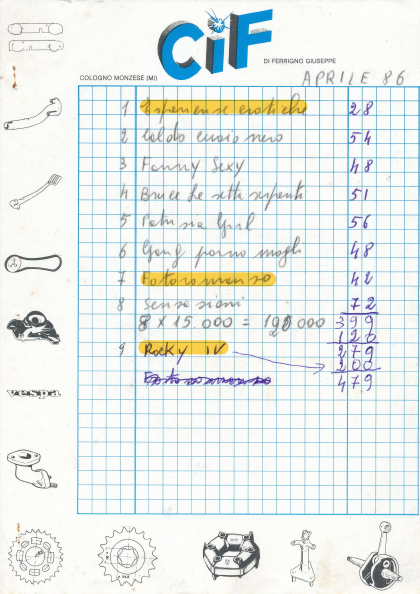 CIF
DI FERRIGNO GIUSEPPE
COLOGNO MONZESE (MI)
APRILE 86
1 Esperienze erotiche 28
2 Caldo cuoio nero 54
3 Fanny Sexy 48
4 Bruce Le sette serpenti 51
5 Girl 56
6 Gang porno mogli 48
7 Fotoromanzo 42
8 Sensazioni 72
8 X 15.000 = 120 000 399
120
9 ROCKY IV 279
200
Fotoromanzo 479
vespa